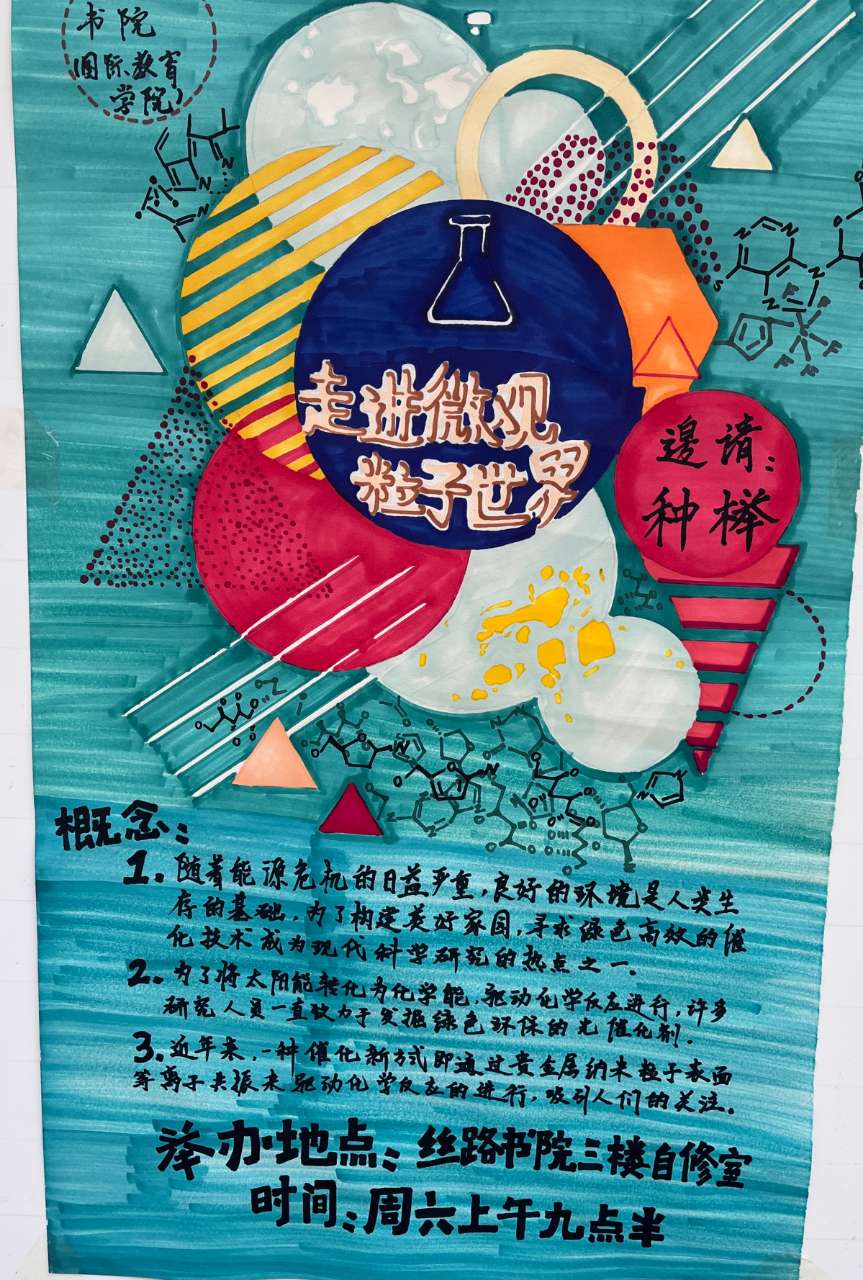 书院
(国际教育
学院)
走进微观
粒子世界
邀请:
种榉
概念:
1. 随着能源危机的日益严重,良好的环境是人类生
存的基础,为了构建美好家园,寻求绿色高效的催
化技术成为现代科学研究的热点之一.
2. 为了将太阳能转化为化学能,驱动化学反应进行,许多
研究人员一直致力于发掘绿色环保的光催化剂.
3. 近年来,一种催化新方式即通过贵金属纳米粒子表面
等离子共振来驱动化学反应的进行,吸引人们的关注.
举办地点:丝路书院三楼自修室
时间:周六上午九点半